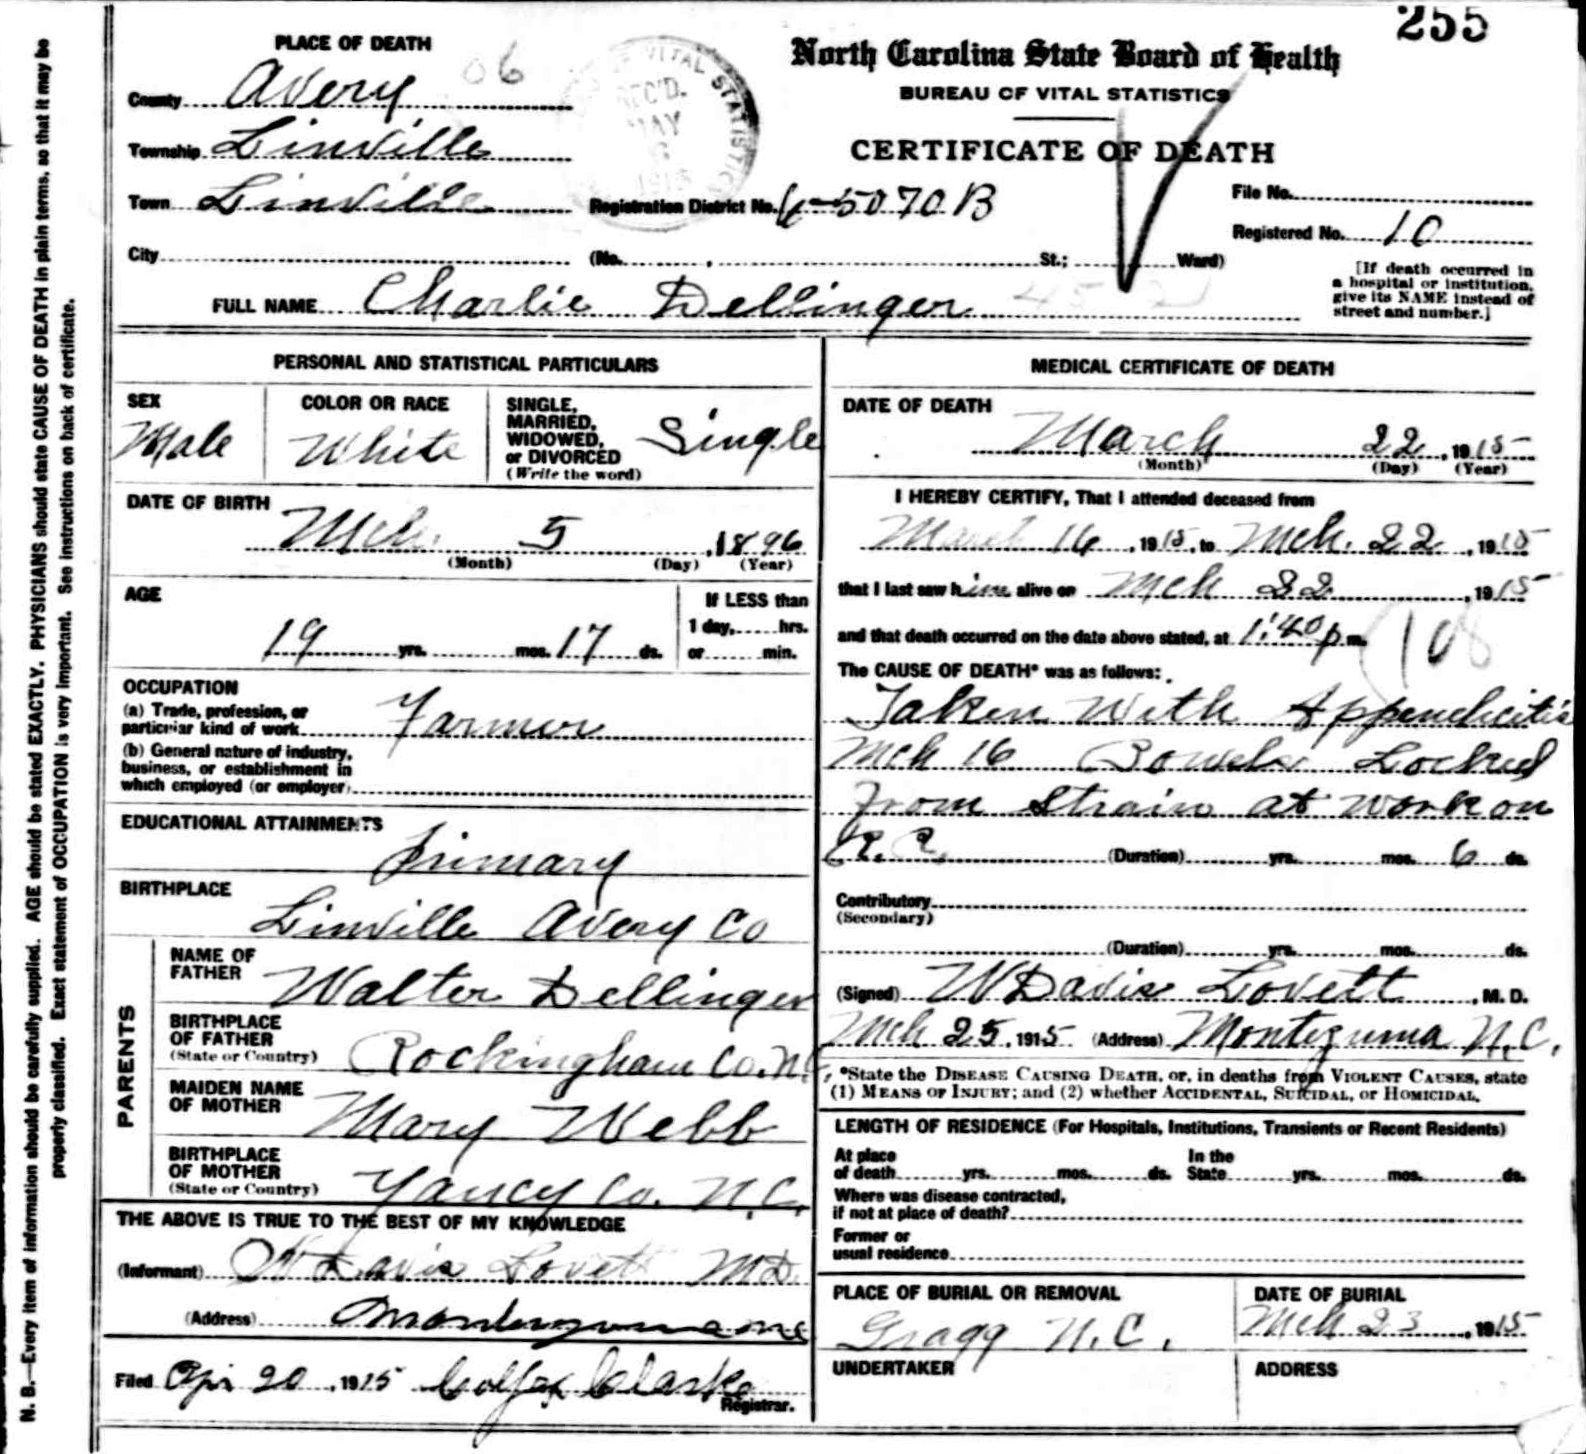 255
PLACE OF DEATH
06
North Carolina State Board of Health
BUREAU OF VITAL STATISTICS
CERTIFICATE OF DEATH
County Avery
Township Linville
Town Linville
VITAL STATISTICS REC'D. MAY 6 1915
Registration District No. 6-5070 B
File No.
Registered No. 10
City (No. , St.; Ward)
[If death occurred in
a hospital or institution,
give its NAME instead of
street and number.]
FULL NAME Charlie Dellinger
PERSONAL AND STATISTICAL PARTICULARS
SEX
Male
COLOR OR RACE
White
SINGLE,
MARRIED,
WIDOWED,
or DIVORCED
(Write the word)
Single
DATE OF BIRTH
Mch. 5, 1896
(Month) (Day) (Year)
AGE
19 yrs. mos. 17 ds.
If LESS than
1 day, hrs.
or min.
OCCUPATION
(a) Trade, profession, or
particular kind of work Farmer
(b) General nature of industry,
business, or establishment in
which employed (or employer)
EDUCATIONAL ATTAINMENTS
Primary
BIRTHPLACE
Linville Avery Co
PARENTS
NAME OF
FATHER
Walter Dellinger
BIRTHPLACE
OF FATHER
(State or Country) Rockingham Co. N.C.
MAIDEN NAME
OF MOTHER
Mary Webb
BIRTHPLACE
OF MOTHER
(State or Country) Yancy Co. N.C.
THE ABOVE IS TRUE TO THE BEST OF MY KNOWLEDGE
(Informant) W Davis Lovett M D.
(Address) Montezuma NC
Filed Apr 20, 1915 Colfax Clark
Registrar.
MEDICAL CERTIFICATE OF DEATH
DATE OF DEATH
March 22, 1915
(Month) (Day) (Year)
I HEREBY CERTIFY, That I attended deceased from
March 16, 1915, to Mch. 22, 1915
that I last saw him alive on Mch 22, 1915
and that death occurred on the date above stated, at 1:40 p.m.
108
The CAUSE OF DEATH* was as follows:
Taken With Appendicitis
Mch 16 Bowels Locked
From Strain at work on
R.R. (Duration) yrs. mos. 6 ds.
Contributory
(Secondary)
(Duration) yrs. mos. ds.
(Signed) W Davis Lovett, M. D.
Mch 25, 1915 (Address) Montezuma N.C.
*State the DISEASE CAUSING DEATH, or, in deaths from VIOLENT CAUSES, state
(1) MEANS OF INJURY; and (2) whether ACCIDENTAL, SUICIDAL, or HOMICIDAL.
LENGTH OF RESIDENCE (For Hospitals, Institutions, Transients or Recent Residents)
At place
of death yrs. mos. ds.
In the
State yrs. mos. ds.
Where was disease contracted,
if not at place of death?
Former or
usual residence
PLACE OF BURIAL OR REMOVAL
Gragg N.C.
DATE OF BURIAL
Mch 23, 1915
UNDERTAKER
ADDRESS
N. B.—Every item of information should be carefully supplied. AGE should be stated EXACTLY. PHYSICIANS should state CAUSE OF DEATH in plain terms, so that it may be
properly classified. Exact statement of OCCUPATION is very important. See instructions on back of certificate.